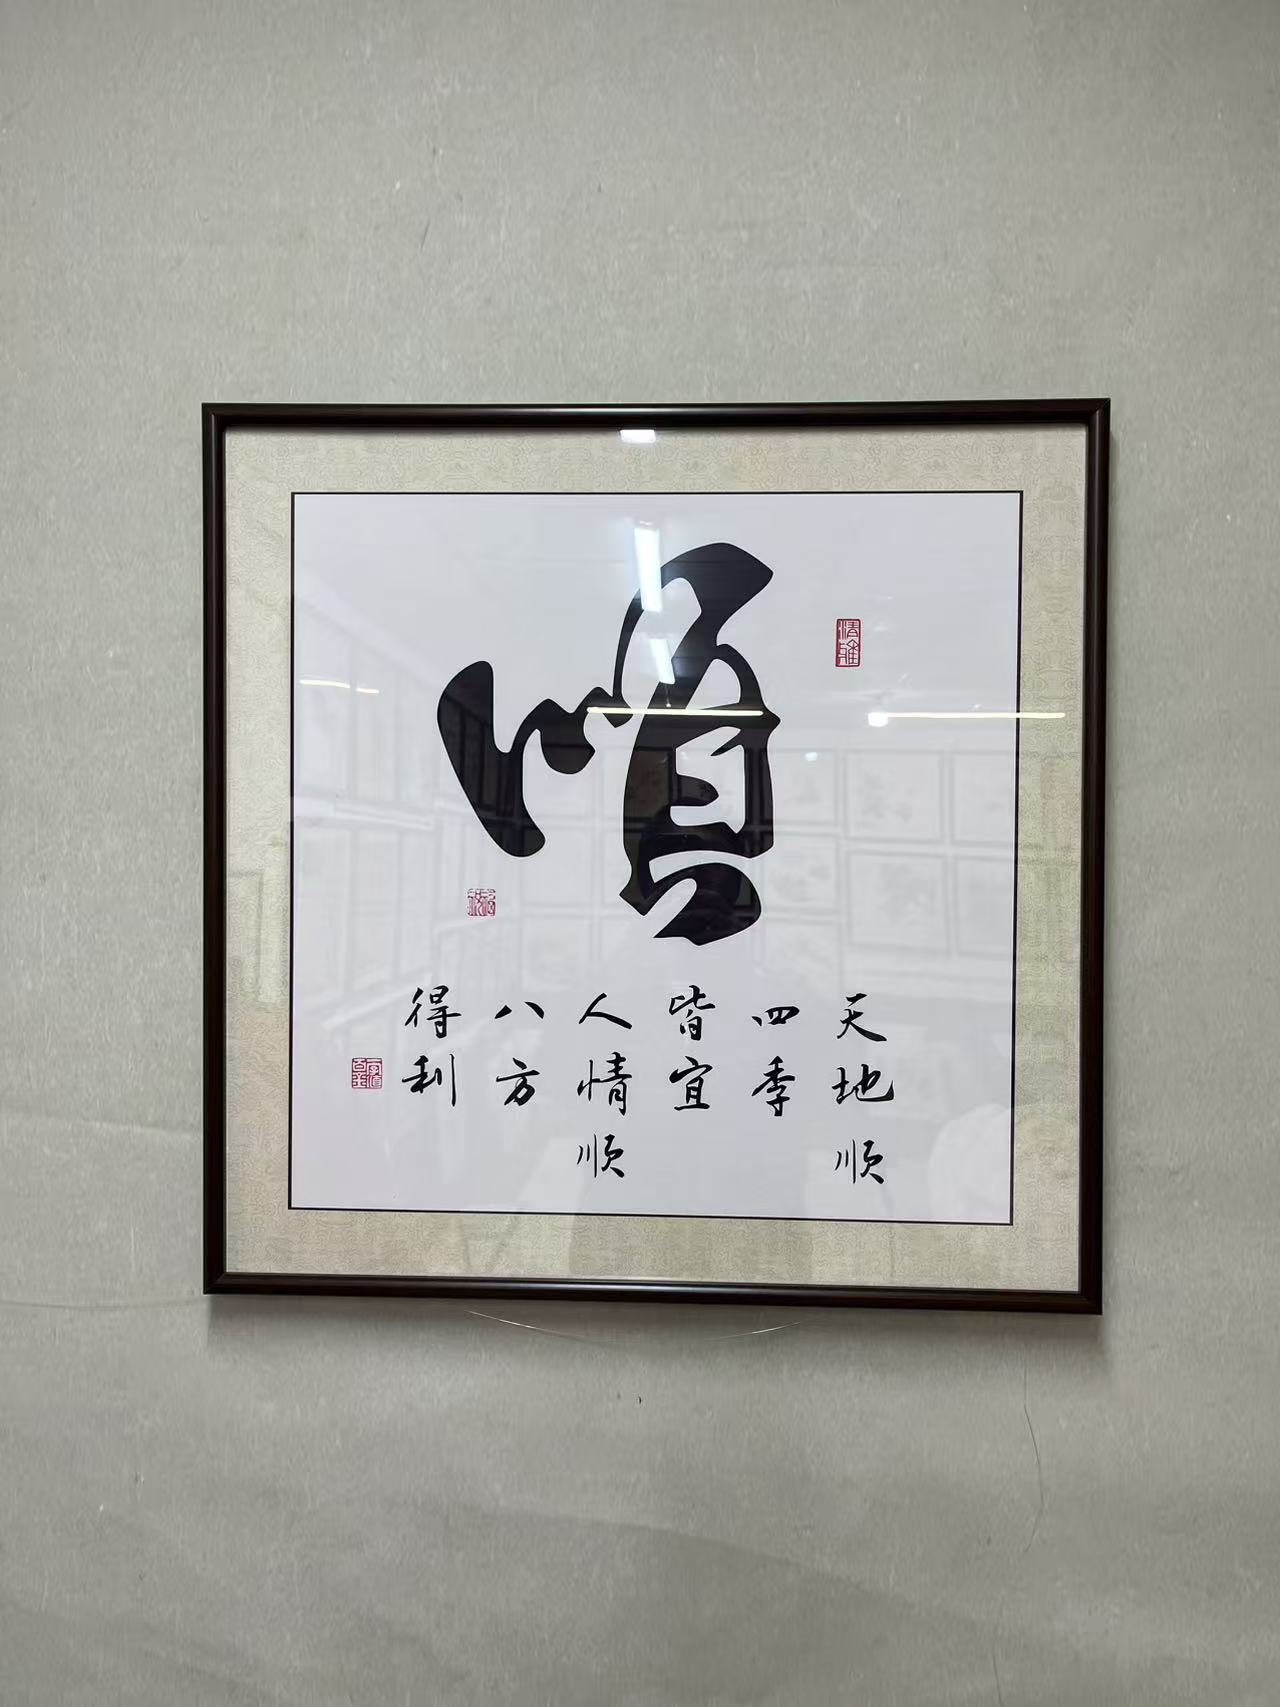 順
清雅
天地顺
四季
皆宜
人情顺
八方
得利